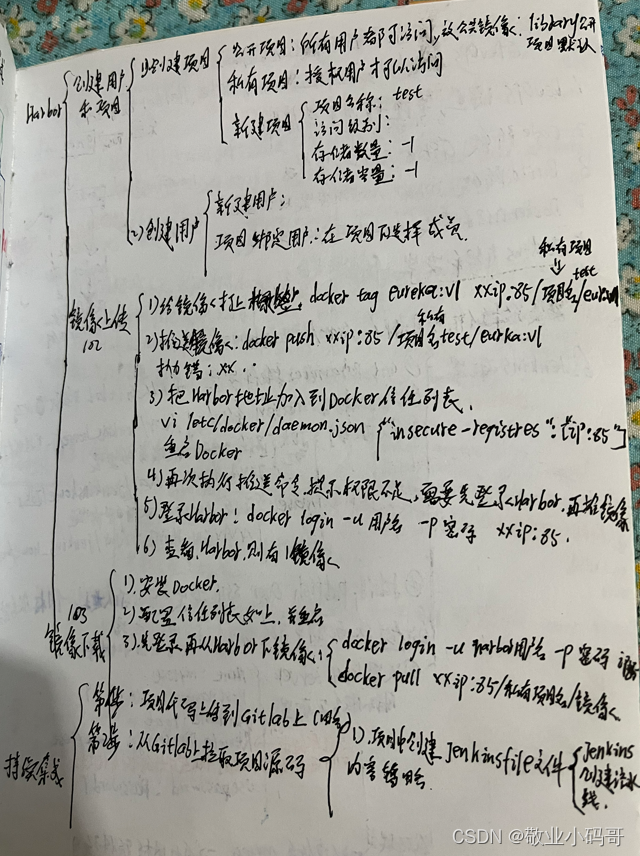 Harbor
创建用户
和项目
1)创建项目
公开项目：所有用户都可访问，放公共镜像，library公开
项目默认
私有项目：授权用户才可以访问
新建项目
项目名称：test
访问级别：
存储数量：-1
存储容量：-1
2)创建用户
新建用户：
项目绑定用户：在项目内选择成员.
镜像上传
102
私有项目
test
1)给镜像打上 docker tag eureka:v1 xxip:85/项目名/eureka
私有
2)推送镜像：docker push xxip:85/项目名test/eurka:v1
报错：xx..
3)把Harbor地址加入到Docker信任列表.
vi /etc/docker/daemon.json {"insecure-registres":["ip:85"]
重启Docker
4)再次执行推送命令,提示权限不足,需要先登录Harbor,再推镜像
5)登录Harbor：docker login -u 用户名 -p 密码 xxip:85.
6)查看Harbor,则有镜像
103
镜像下载
1)安装Docker.
2)配置信任列表如上,重启
3)先登录再从Harbor下镜像：
docker login -u harbor用户名 -p 密码
docker pull xxip:85/私有项目名/镜像
持续集成
第1步：项目代码上传到Gitlab上
第2步：从Gitlab上拉取项目源码
1).项目中创建Jenkinsfile文件
内容
Jenkins
创建流水
线.
CSDN @敬业小码哥